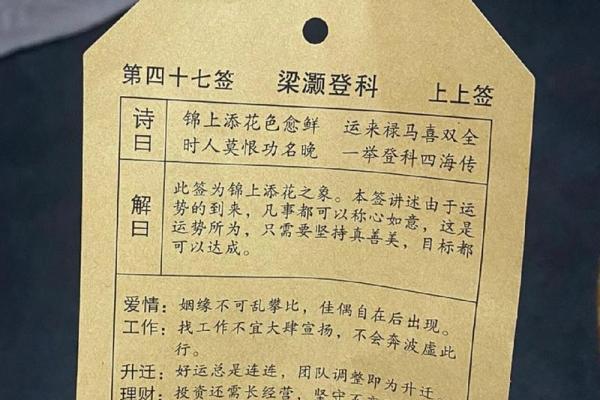 第四十七签 梁灏登科 上上签
诗曰
锦上添花色愈鲜 运来禄马喜双全
时人莫恨功名晚 一举登科四海传
解曰
此签为锦上添花之象。本签讲述由于运
势的到来，凡事都可以称心如意，这是
运势所为，只需要坚持真善美，目标都
可以达成。
爱情：姻缘不可乱攀比，佳偶自在后出现。
工作：找工作不宜大肆宣扬，不会奔波虚此
行。
升迁：好运总是连连，团队调整即为升迁。
理财：投资还需长经营，坚守不